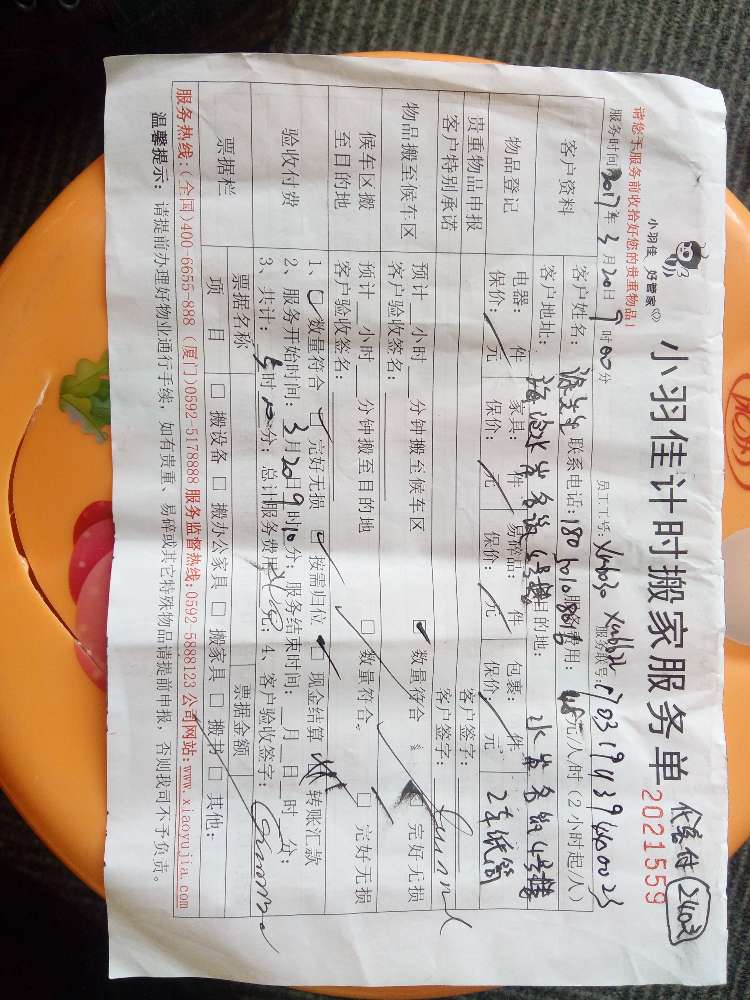 小羽佳 好管家
小羽佳计时搬家服务单
2021559
请您于服务前收拾好您的贵重物品！
服务时间：2017年3月20日9时00分 员工工号： 服务联号：
客户资料 客户姓名： 联系电话： 服务费用： 元/人/时（2小时起/人）
客户地址： 目的地： 水岸名筑4号楼
物品登记 电器： 件 家具： 件 易碎品： 件 包裹： 件
保价： 元 保价： 元 保价： 元 保价： 元
贵重物品申报
客户特别承诺 客户签字：
物品搬至候车区 预计 小时 分钟搬至候车区 数量符合 完好无损
客户验收签名： 客户签字：
候车区搬至目的地 预计 小时 分钟搬至目的地 数量符合。 完好无损
客户验收签名：
验收付费 1、 数量符合 完好无损 按需归位 现金结算 转账汇款
2、服务开始时间：3月20日9时10分； 服务结束时间： 月 日 时 分；
3、共计： 时 分； 总计服务费用： 元； 4、客户验收签字：
票据栏 票据名称 票据金额
项 目 搬设备 搬办公家具 搬家具 搬书 其他：
服务热线：(全国)400 6655-888 (厦门)0592-5178888 服务监督热线：0592-5888123 公司网站：www.xiaoyujia.com
温馨提示： 请提前办理好物业通行手续，如有贵重、易碎或其它特殊物品请提前申报，否则我司不予负责。